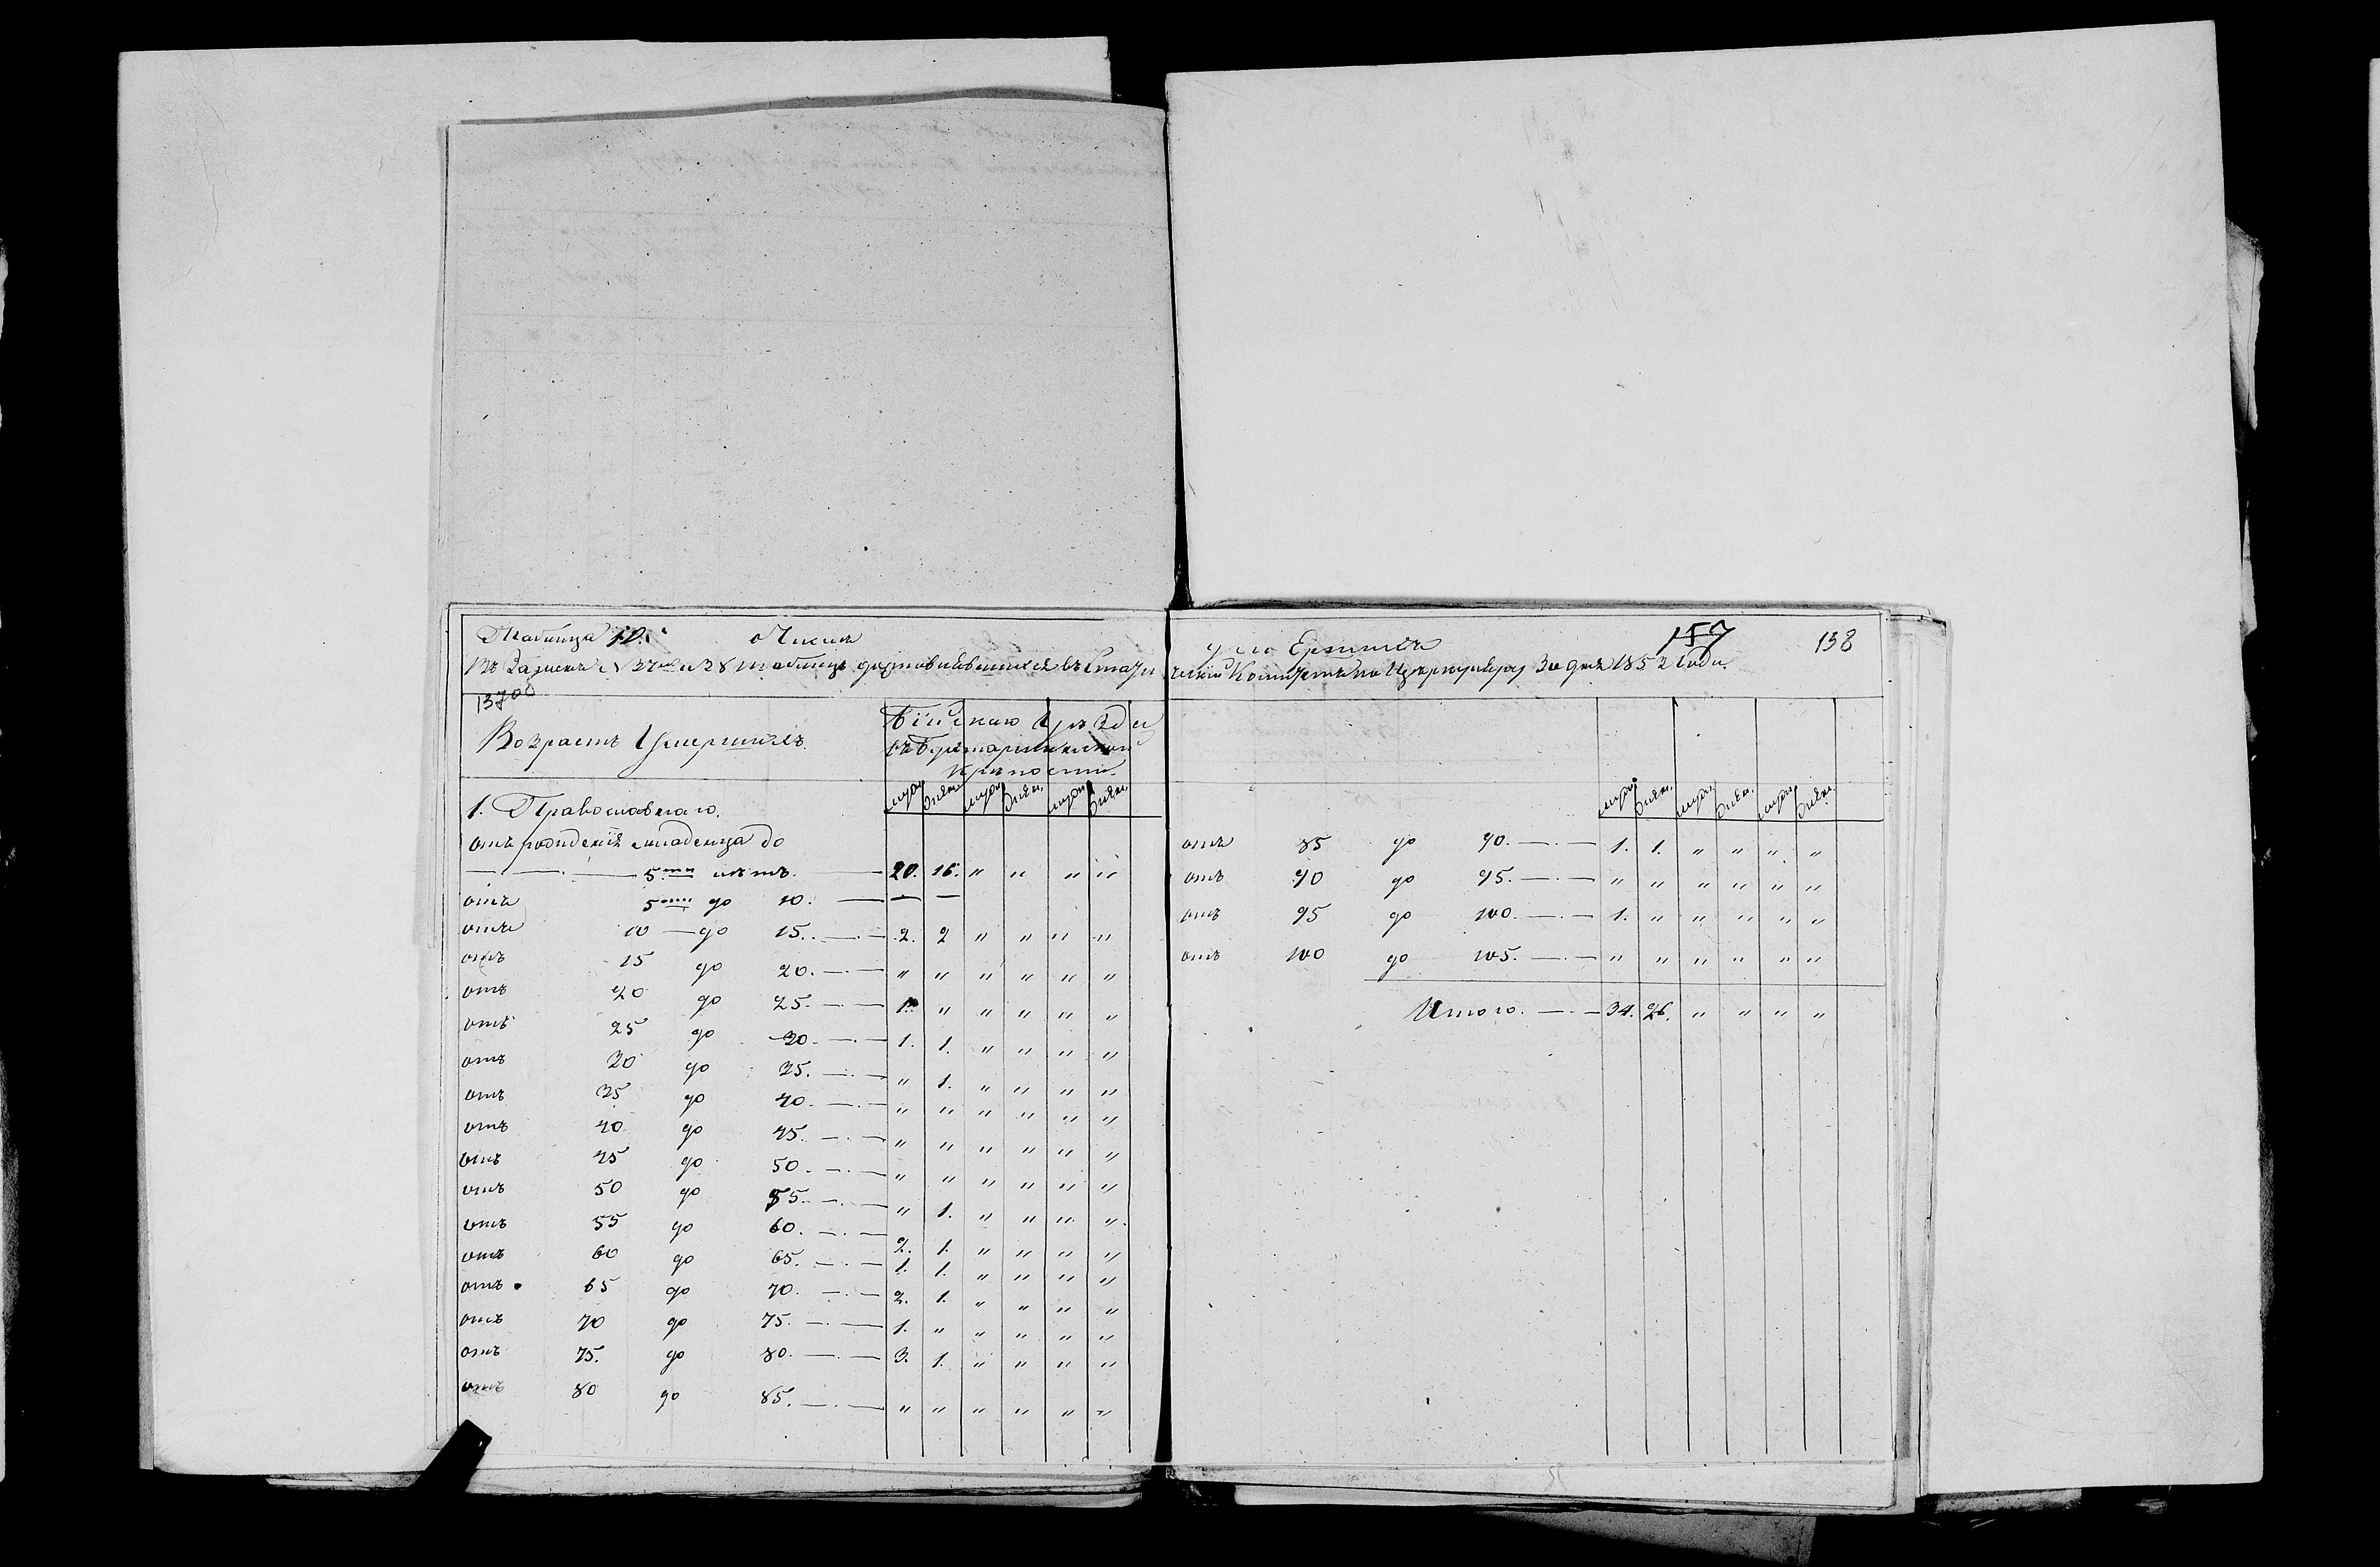 Таблица 10. о Числе умерших 157 138
Въ Замен и 28 таблицъ доставившихся въ Статистическiй Комитетъ по Церкви за 1852 годъ
13700
Возрастъ Умершихъ.
Бiйскаго Уѣзда
въ Бухтарминской
Крѣпости.
муж. женс. муж. женс. муж. женс. муж. женс. муж. женс. муж. женс.
1. Православнаго.
отъ рожденiя младенца до
— . — 5ти лѣтъ. — 20. 16. " " " "
отъ 5ти до 10. — — —
отъ 10 — до 15. — . — 2. 2 " " " "
отъ 15 до 20. — . — " " " " " "
отъ 20 до 25. — . — 1. " " " " "
отъ 25 до 30. — . — 1. 1. " " " "
отъ 30 до 35. — . — " 1. " " " "
отъ 35 до 40. — . — " " " " " "
отъ 40 до 45. — . — " " " " " "
отъ 45 до 50. — . — " " " " " "
отъ 50 до 55. — . — " 1. " " " "
отъ 55 до 60. — . — 2. 1. " " " "
отъ 60 до 65. — . — 1. 1. " " " "
отъ 65 до 70. — . — 2. 1. " " " "
отъ 70 до 75. — . — 1. " " " " "
отъ 75. до 80. — . — 3. 1. " " " "
отъ 80 до 85. — . — " " " " " "
отъ 85 до 90. — . — 1. 1. " " " "
отъ 90 до 95. — . — " " " " " "
отъ 95 до 100. — . — 1. " " " " "
отъ 100 до 105. — . — " " " " " "
Итого. — . — 34. 26. " " " "